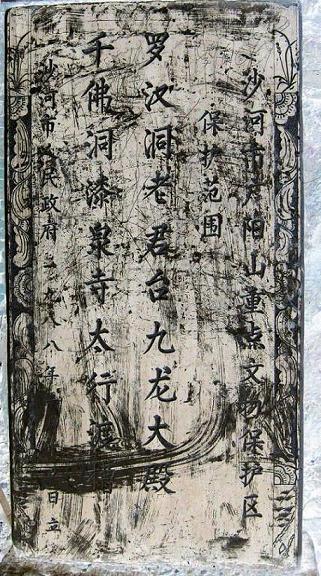 沙河市广阳山重点文物保护区
保护范围
罗汉洞老君台九龙大殿
千佛洞漆泉寺太行
沙河市人民政府二〇〇八年 日立